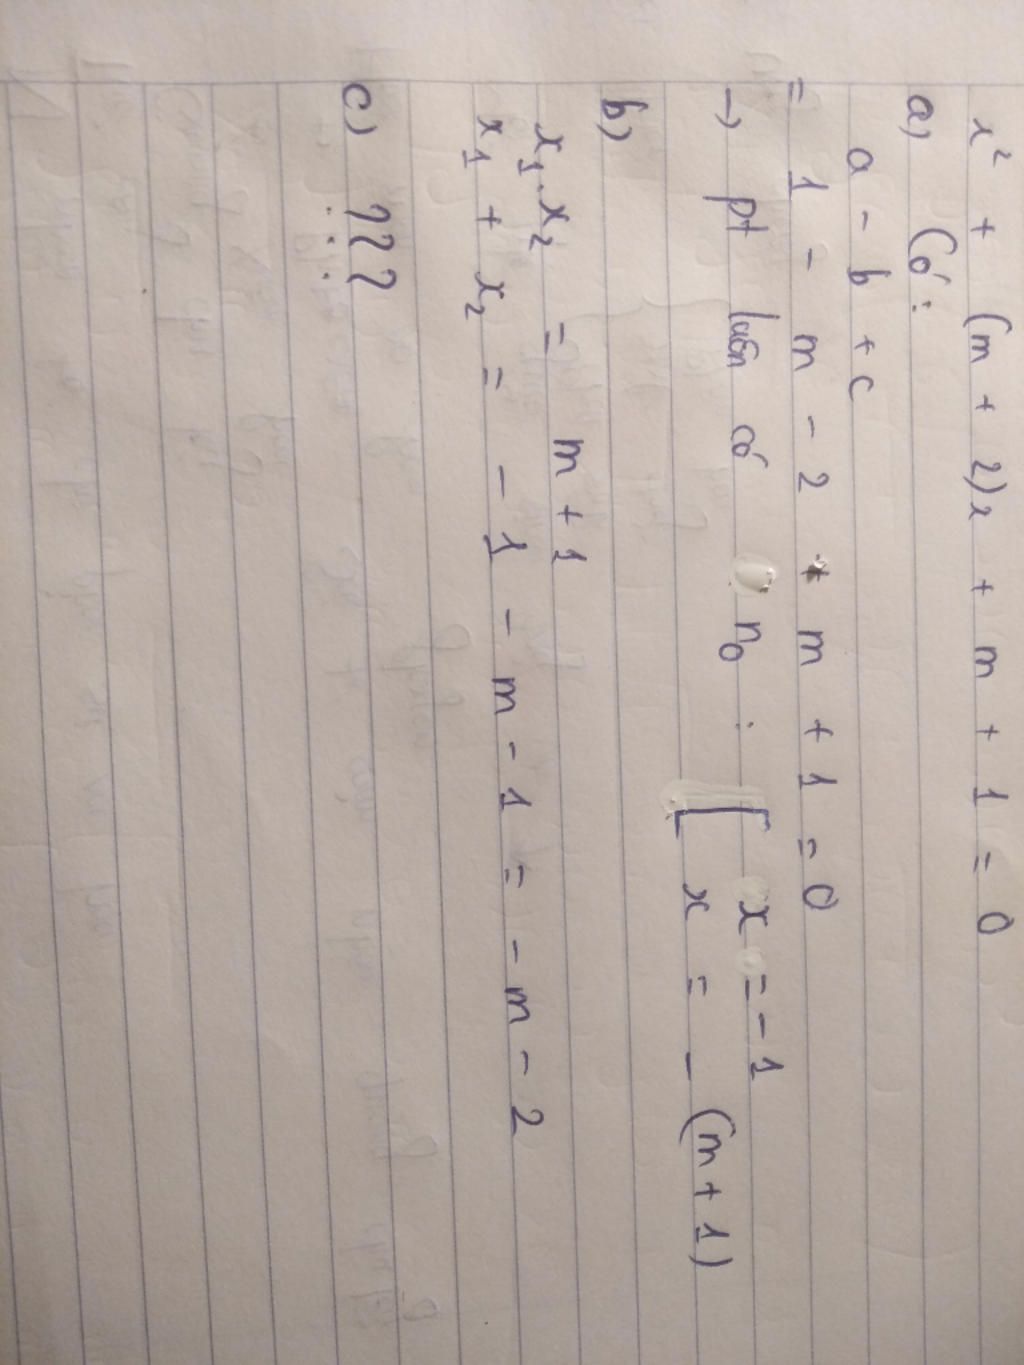 x² + (m + 2)x + m + 1 = 0
a) Có :
a - b + c
= 1 - m - 2 + m + 1 = 0
→ pt luôn có n₀ : [ x = -1
x = - (m + 1)
b)
x₁.x₂ = m + 1
x₁ + x₂ = - 1 - m - 1 = - m - 2
c) ???